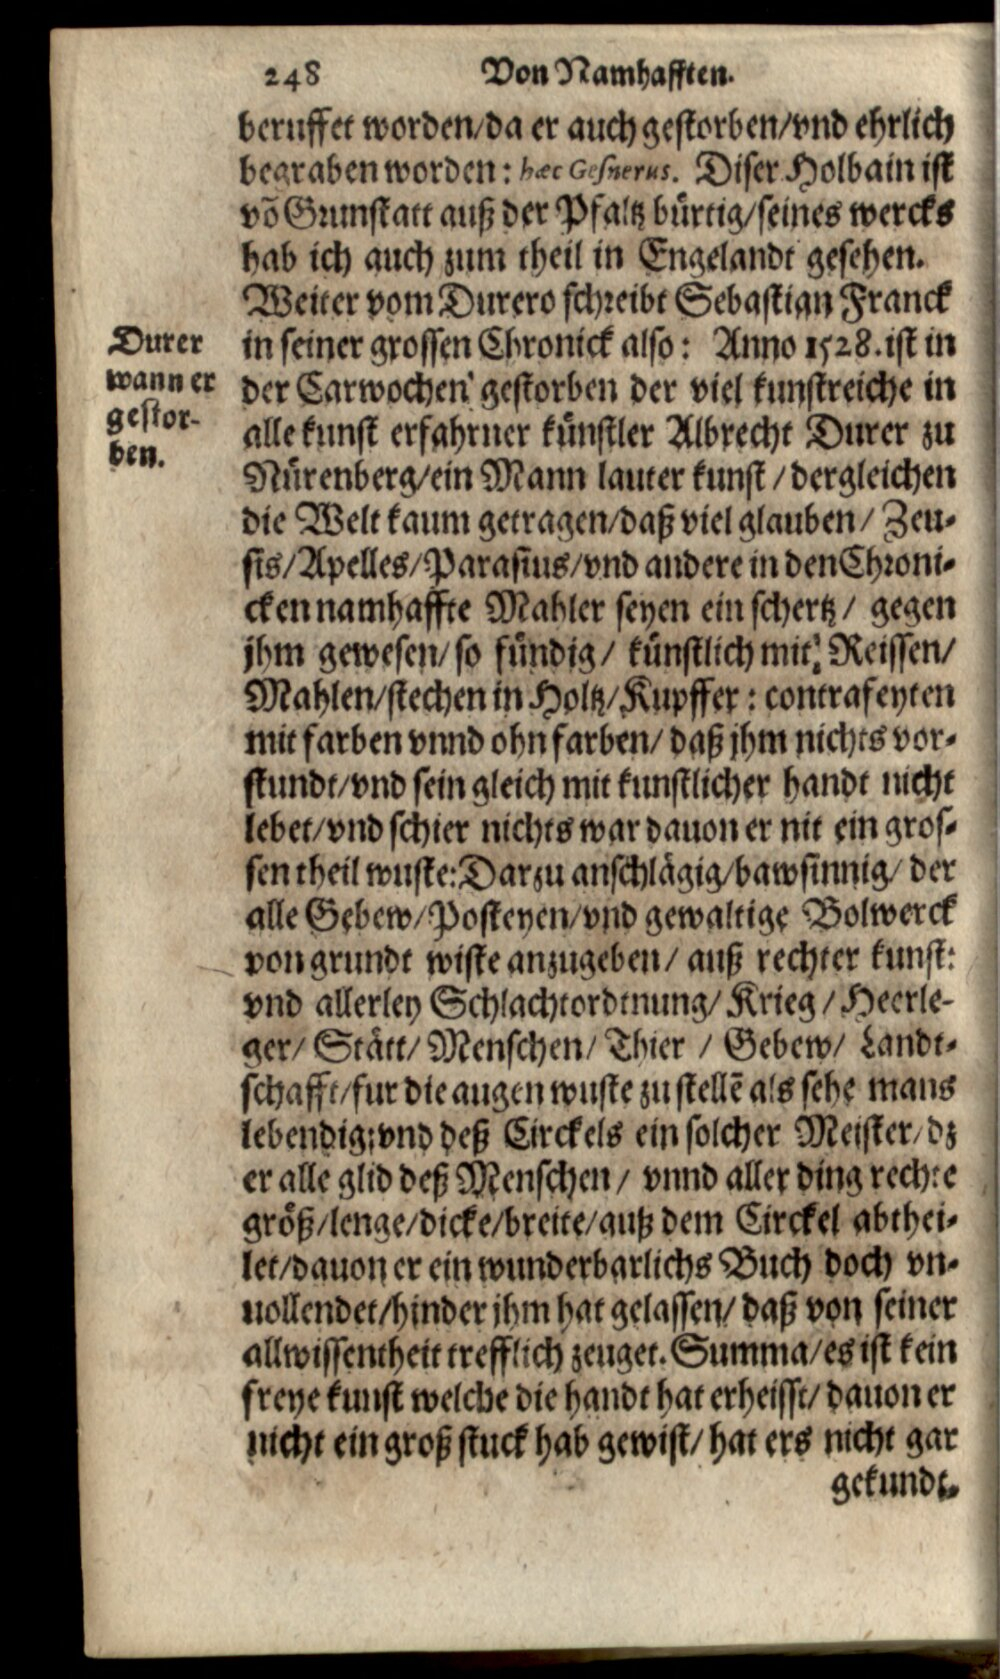 248 Von Namhafften.
beruffet worden/da er auch gestorben/vnd ehrlich
begraben worden: hæc Gesnerus. Diser Holbain ist
võ Grunstatt auß der Pfaltz bürtig/seines wercks
hab ich auch zum theil in Engelandt gesehen.
Weiter vom Durero schreibt Sebastian Franck
in seiner grossen Chronick also: Anno 1528. ist in
der Carwochen gestorben der viel kunstreiche in
alle kunst erfahrner künstler Albrecht Durer zu
Nürenberg/ein Mann lauter kunst / dergleichen
die Welt kaum getragen/daß viel glauben/ Zeu-
sis/Apelles/Parasius/vnd andere in den Chroni-
cken namhaffte Mahler seyen ein schertz / gegen
jhm gewesen/ so fündig / künstlich mit Reissen/
Mahlen/stechen in Holtz/Kupffer: contrafeyten
mit farben vnnd ohn farben/ daß jhm nichts vor-
stundt/vnd sein gleich mit kunstlicher handt nicht
lebet/vnd schier nichts war dauon er nit ein gros-
sen theil wuste: Darzu anschlägig/bawsinnig/ der
alle Gebew/Posteyen/vnd gewaltige Bolwerck
von grundt wiste anzugeben/ auß rechter kunst:
vnd allerley Schlachtordtnung/ Krieg / Heerle-
ger/ Stätt/ Menschen/ Thier / Gebew/ Landt-
schafft/fur die augen wuste zu stellē als sehe mans
lebendig: vnd deß Circkels ein solcher Meister/dz
er alle glid deß Menschen / vnnd aller ding rechte
größ/lenge/dicke/breite/auß dem Circkel abthei-
let/dauon er ein wunderbarlichs Buch doch vn-
uollendet/hinder jhm hat gelassen/ daß von seiner
allwissentheit trefflich zeuget. Summa/es ist kein
freye kunst welche die handt hat erheisst/ dauon er
nicht ein groß stuck hab gewist/ hat ers nicht gar
gekundt.
Durer
wann er
gestor-
ben.